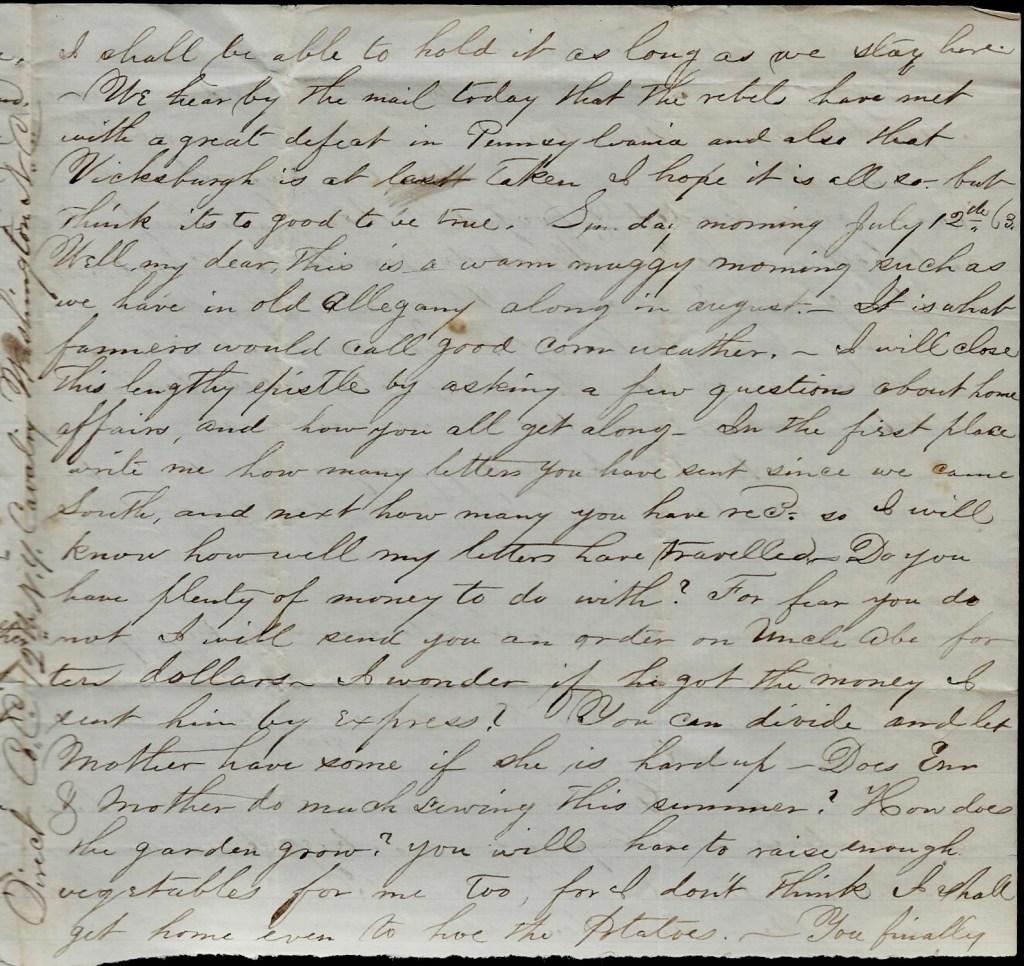 I shall be able to hold it as long as we stay here.
- We hear by the mail today that the rebels have met
with a great defeat in Pennsylvania and also that
Vicksburgh is at last taken I hope it is all so. but
think its to good to be true. Sunday morning July 12th 63.
Well, my dear, this is a warm muggy morning such as
we have in old Allegany along in august. - It is what
farmers would call good corn weather. - I will close
this lengthy epistle by asking a few questions about home
affairs, and how you all get along - In the first place
write me how many letters you have sent since we came
South, and next how many you have recd. so I will
know how well my letters have travelled - Do you
have plenty of money to do with? For fear you do
not I will send you an order on Uncle Abe for
ten dollars - I wonder if he got the money I
sent him by express? You can divide and let
Mother have some if she is hard up - Does Em
& Mother do much sewing this summer? How does
the garden grow? you will have to raise enough
vegetables for me too, for I don't think I shall
get home even to hoe the Potatoes. - You finally
Direct Co. 12th N.Y. Cavalry Washington N.C.